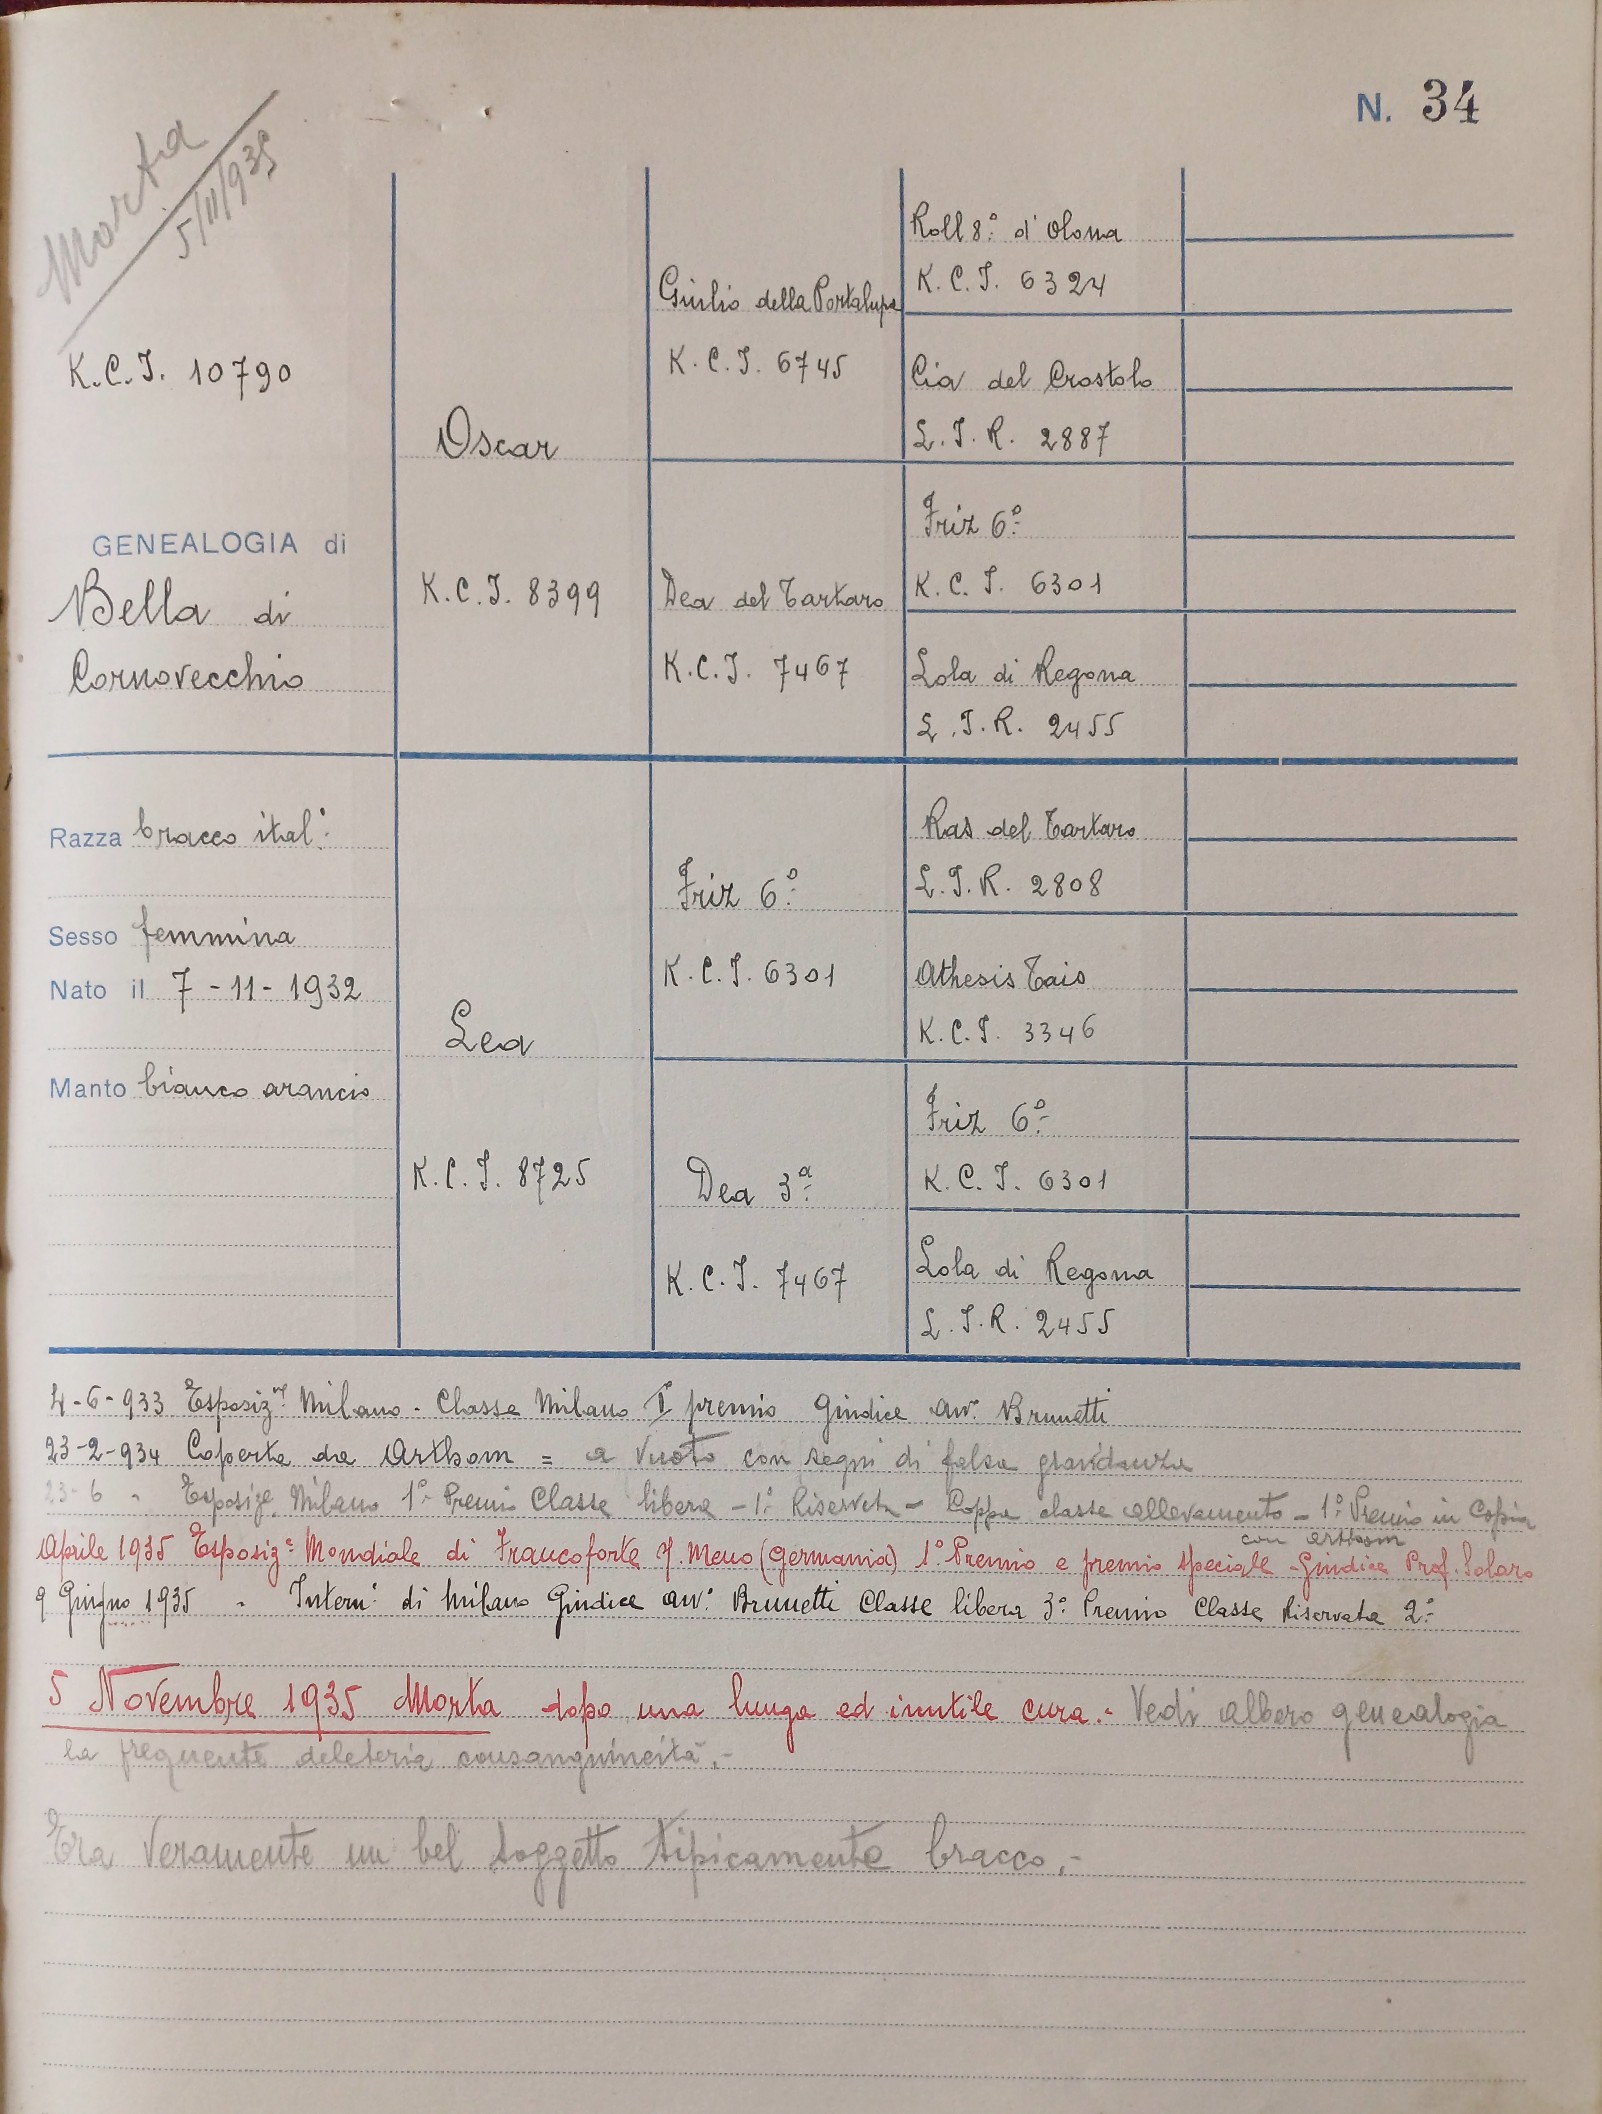 N. 34
Morta
5/11/935
K.C.I. 10790
GENEALOGIA di
Bella di
Cornovecchio
Razza bracco ital.º
Sesso femmina
Nato il 7-11-1932
Manto bianco arancio
Oscar
K.C.I. 8399
Lea
K.C.I. 8725
Giulio della Portalupa
K.C.I. 6745
Dea del Tartaro
K.C.I. 7467
Friz 6º
K.C.I. 6301
Dea 3ª
K.C.I. 7467
Roll 8º d'Olona
K.C.I. 6324
Cia del Crostolo
L.I.R. 2887
Friz 6º
K.C.I. 6301
Lola di Regona
L.I.R. 2455
Ras del Tartaro
L.I.R. 2808
Athesis Tais
K.C.I. 3346
Friz 6º
K.C.I. 6301
Lola di Regona
L.I.R. 2455
4-6-933 Esposiz.ne Milano - Classe Milano I premio Giudice avv. Brunetti
23-2-934 Coperta da Arthom = a vuoto con segni di falsa gravidanza
23-6 " Esposiz. Milano 1º Premio Classe libera - 1º Riservata - Coppa classe allevamento - 1º Premio in Copia
con Arthom
Aprile 1935 Esposiz.e Mondiale di Francoforte s. Meno (Germania) 1º Premio e premio speciale - Giudice Prof. Solaro
9 Giugno 1935 - Intern. di Milano Giudice avv. Brunetti Classe libera 3º Premio Classe Riservata 2º
5 Novembre 1935 Morta dopo una lunga ed inutile cura.- Vedi albero genealogia
la frequente deleteria consanguineità.-
Era veramente un bel soggetto tipicamente bracco.-